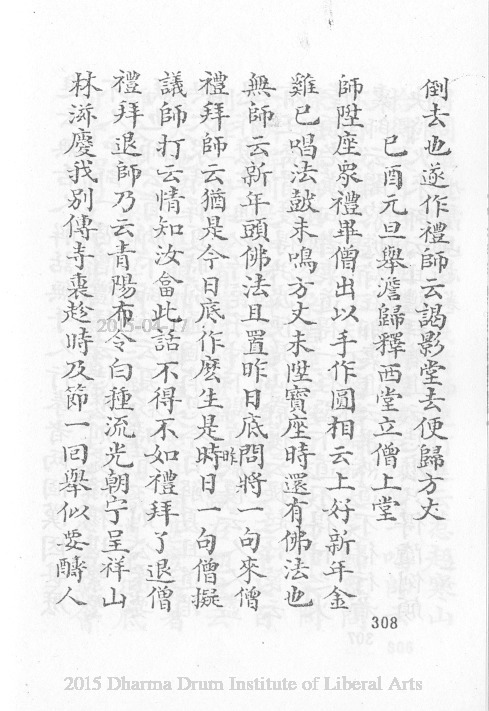 倒去也遂作禮師云謁影堂去便歸方丈
己酉元旦舉澹歸釋西堂立僧上堂
師陞座眾禮畢僧出以手作圓相云上好新年金
雞已唱法鼓未鳴方丈未陞寶座時還有佛法也
無師云新年頭佛法且置昨日底問將一句來僧
禮拜師云猶是今日底作麽生是昨時日一句僧擬
議師打云情知汝會此話不得不如禮拜了退僧
禮拜退師乃云青陽布令白種流光朝宁呈祥山
林溢慶我別傳寺裏趁時及節一回舉似要醻人
308
2015-04-17
2015 Dharma Drum Institute of Liberal Arts